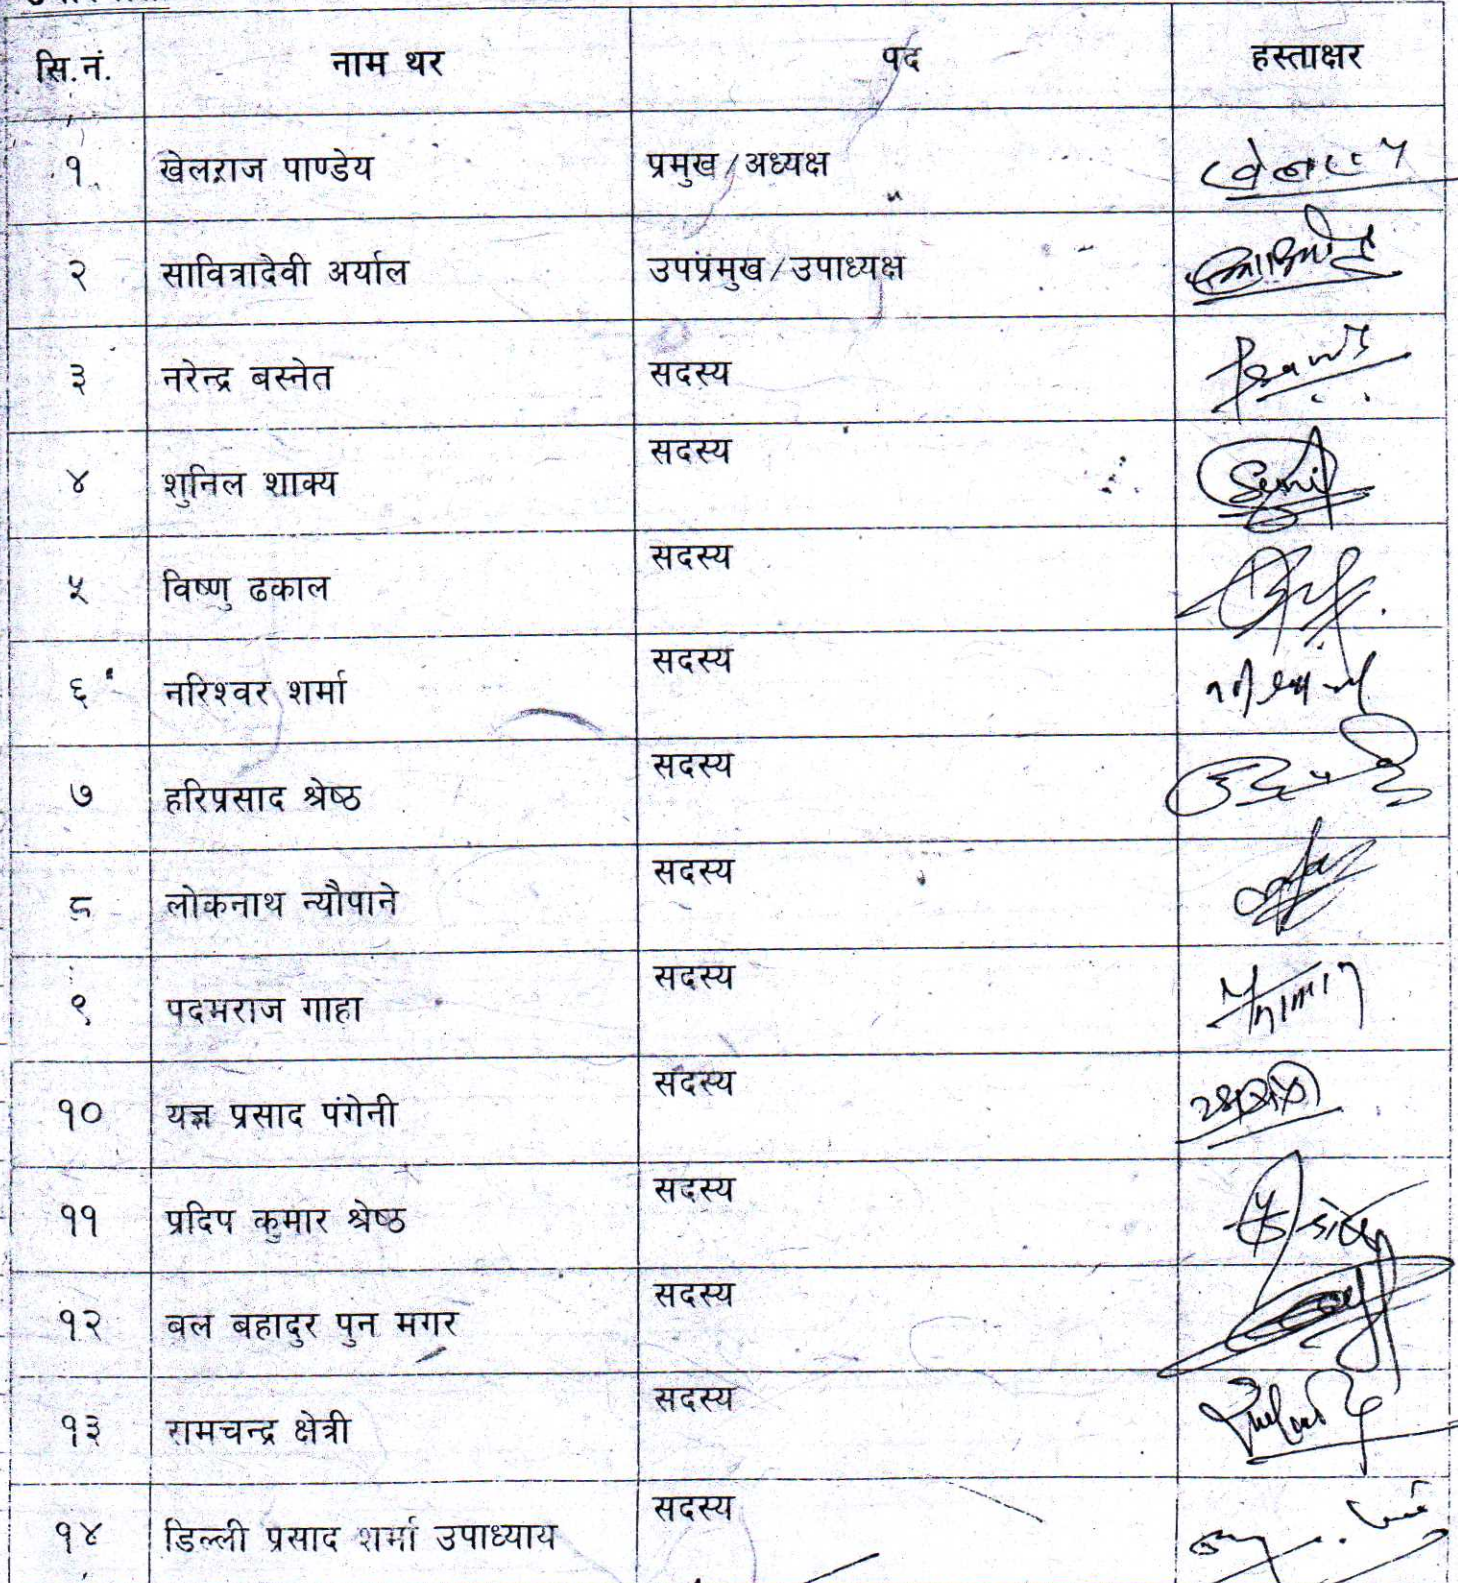 सि.नं. नाम थर पद हस्ताक्षर
१ खेलराज पाण्डेय प्रमुख/अध्यक्ष
२ सावित्रादेवी अर्याल उपप्रमुख/उपाध्यक्ष
३ नरेन्द्र बस्नेत सदस्य
४ शुनिल शाक्य सदस्य
५ विष्णु ढकाल सदस्य
६ नरिश्वर शर्मा सदस्य
७ हरिप्रसाद श्रेष्ठ सदस्य
८ लोकनाथ न्यौपाने सदस्य
९ पदमराज गाहा सदस्य
१० यज्ञ प्रसाद पंगेनी सदस्य
११ प्रदिप कुमार श्रेष्ठ सदस्य
१२ बल बहादुर पुन मगर सदस्य
१३ रामचन्द्र क्षेत्री सदस्य
१४ डिल्ली प्रसाद शर्मा उपाध्याय सदस्य